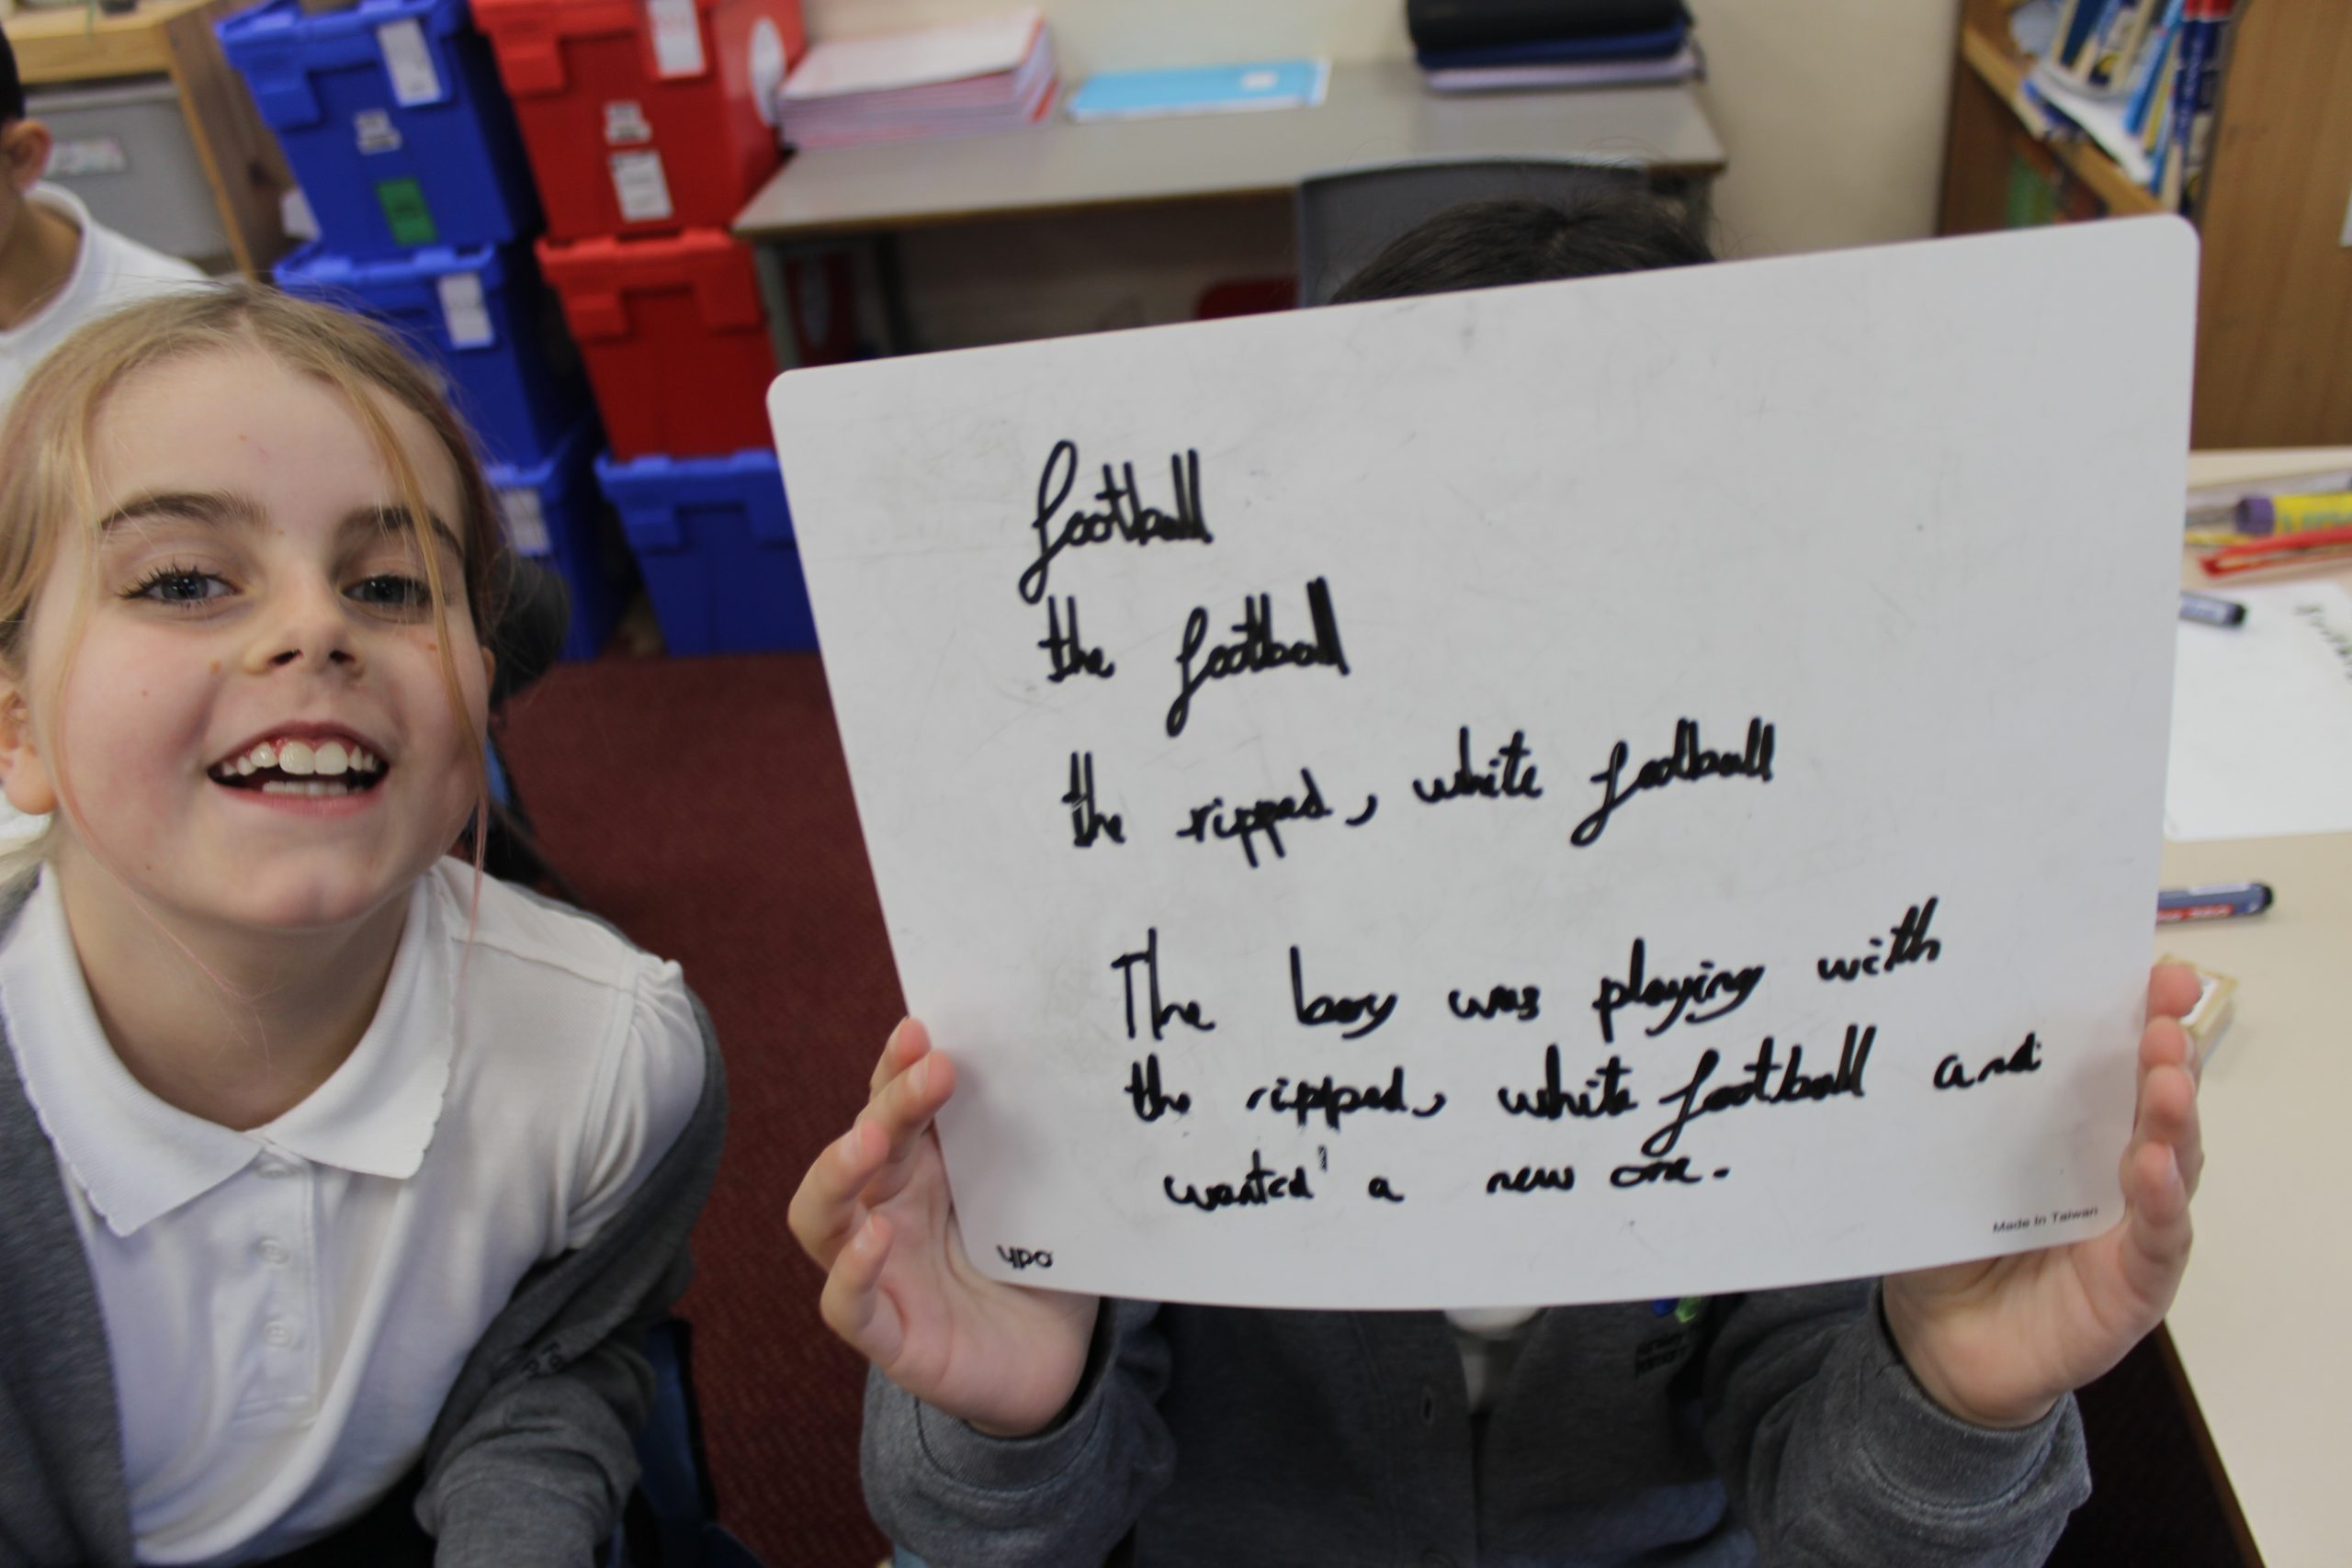 football
the football
the ripped, white football
The boy was playing with
the ripped, white football and
wanted a new one.
ypo
Made In Taiwan